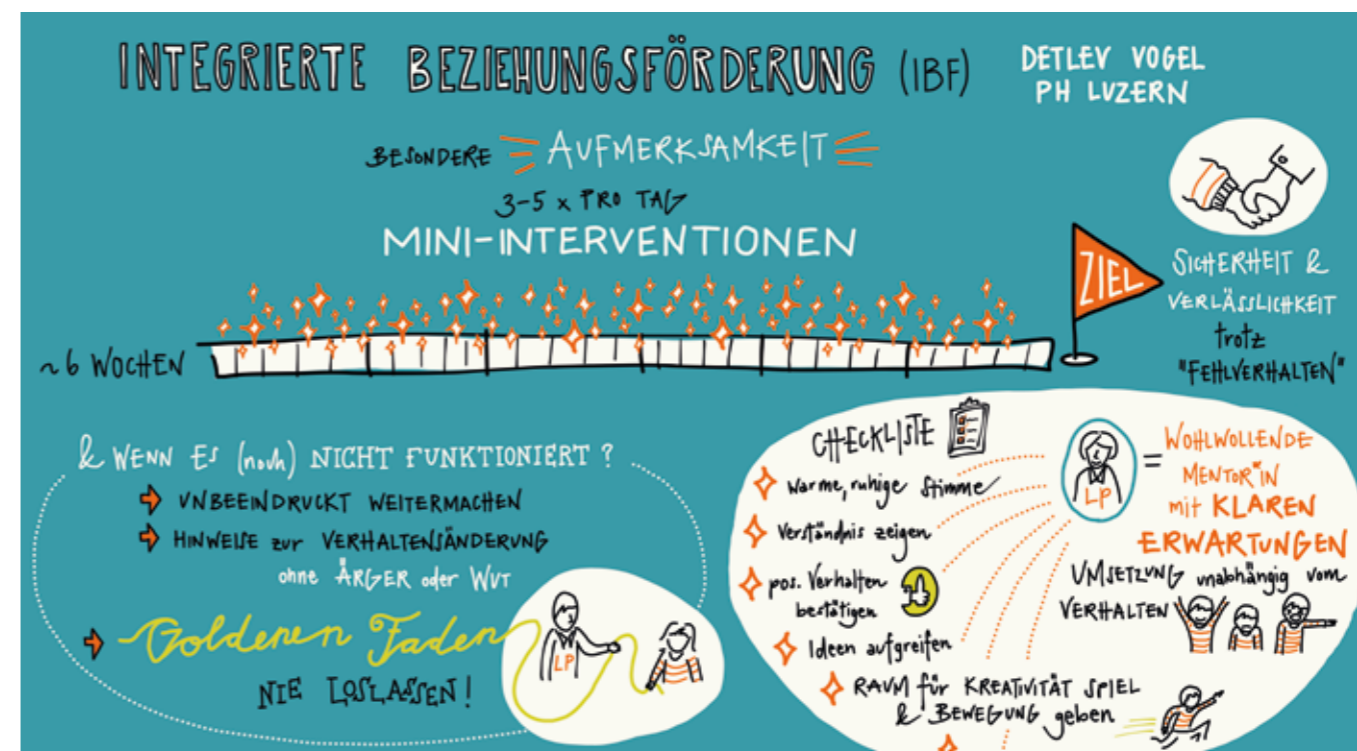 INTEGRIERTE BEZIEHUNGSFÖRDERUNG (IBF)
DETLEV VOGEL
PH LUZERN
BESONDERE AUFMERKSAMKEIT
3-5 x PRO TAG
MINI-INTERVENTIONEN
~ 6 WOCHEN
ZIEL
SICHERHEIT &
VERLÄSSLICHKEIT
trotz
"FEHLVERHALTEN"
& WENN ES (noch) NICHT FUNKTIONIERT?
UNBEEINDRUCKT WEITERMACHEN
HINWEISE zur VERHALTENSÄNDERUNG
ohne ÄRGER oder WUT
Goldenen Faden
NIE LOSLASSEN!
LP
CHECKLISTE
warme, ruhige Stimme
Verständnis zeigen
pos. Verhalten
bestätigen
Ideen aufgreifen
RAUM für KREATIVITÄT SPIEL
& BEWEGUNG geben
LP
=
WOHLWOLLENDE
MENTOR*IN
mit KLAREN
ERWARTUNGEN
UMSETZUNG unabhängig vom
VERHALTEN